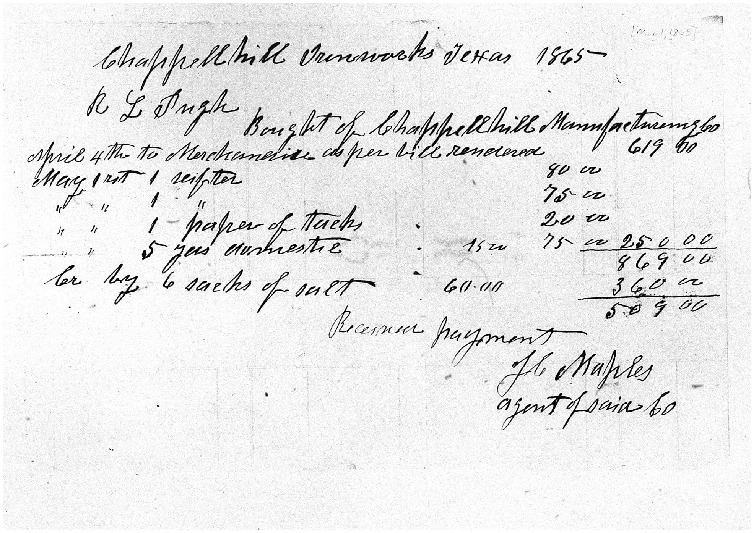 Chappell hill Ironworks Texas 1865
R L Pugh
Bought of Chappell hill Manufacturing Co
April 4th to Merchandise as per bill rendered 619 00
May 1rst 1 seifter 80 00
" " 1 " 75 00
" " 1 paper of tacks 20 00
" " 5 yds domestic 15 00 75 00 250 00
869 00
Cr by 6 sacks of salt 60.00 360 00
509 00
Received payment
Maples
agent of said Co